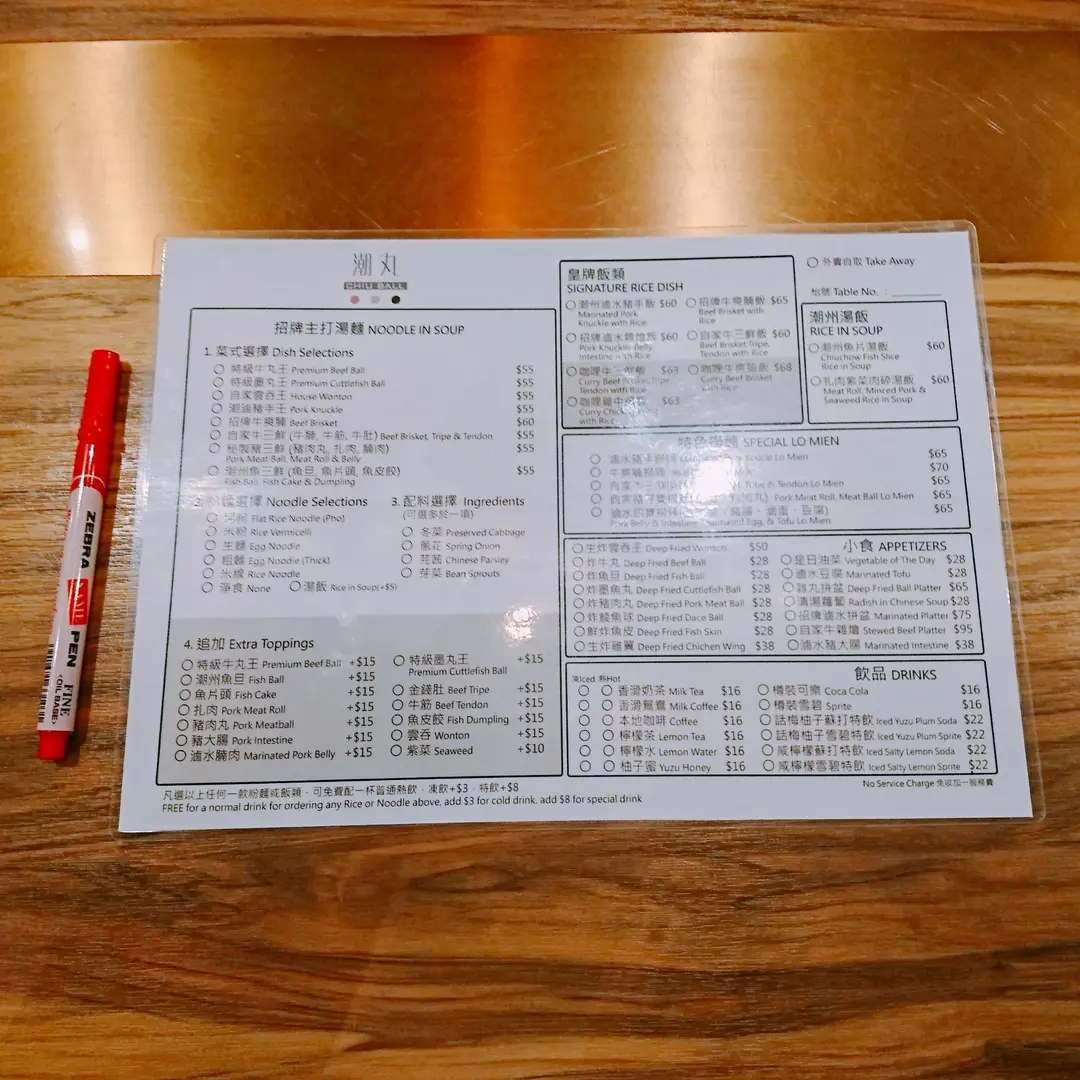 潮丸
CHIU BALL
招牌主打湯麵 NOODLE IN SOUP
1. 菜式選擇 Dish Selections
特級牛丸王 Premium Beef Ball $55
特級墨丸王 Premium Cuttlefish Ball $55
自家雲吞王 House Wonton $55
潮滷豬手王 Pork Knuckle $55
招牌牛爽腩 Beef Brisket $60
自家牛三鮮 (牛腩, 牛筋, 牛肚) Beef Brisket, Tripe & Tendon $55
秘製豬三鮮 (豬肉丸, 扎肉, 腩肉) $55
Pork Meat Ball, Meat Roll & Belly
潮州魚三鮮 (魚旦, 魚片頭, 魚皮餃) $55
Fish Ball, Fish Cake & Dumpling
選擇 Noodle Selections
河粉 Flat Rice Noodle (Pho)
米粉 Rice Vermicelli
生麵 Egg Noodle
粗麵 Egg Noodle (Thick)
米線 Rice Noodle
淨食 None 湯飯 Rice in Soup(+$5)
3. 配料選擇 Ingredients
(可選多於一項)
冬菜 Preserved Cabbage
蔥花 Spring Onion
芫茜 Chinese Parsley
芽菜 Bean Sprouts
4. 追加 Extra Toppings
特級牛丸王 Premium Beef Ball +$15
潮州魚旦 Fish Ball +$15
魚片頭 Fish Cake +$15
扎肉 Pork Meat Roll +$15
豬肉丸 Pork Meatball +$15
豬大腸 Pork Intestine +$15
滷水腩肉 Marinated Pork Belly +$15
特級墨丸王 +$15
Premium Cuttlefish Ball
金錢肚 Beef Tripe +$15
牛筋 Beef Tendon +$15
魚皮餃 Fish Dumpling +$15
雲吞 Wonton +$15
紫菜 Seaweed +$10
凡選以上任何一款粉麵或飯類，可免費配一杯普通熱飲，凍飲+$3，特飲+$8
FREE for a normal drink for ordering any Rice or Noodle above, add $3 for cold drink, add $8 for special drink
皇牌飯類
SIGNATURE RICE DISH
潮州滷水豬手飯 $60
Marinated Pork
Knuckle with Rice
招牌滷水豬雜飯 $60
Pork Knuckle, Belly,
Intestine with Rice
咖喱牛三鮮飯 $63
Curry Beef Brisket, Tripe,
Tendon with Rice
咖喱雞中 $63
Curry Chicken
with Rice
招牌牛爽腩飯 $65
Beef Brisket with
Rice
自家牛三鮮飯 $60
Beef Brisket, Tripe,
Tendon with Rice
咖喱牛爽腩飯 $68
Curry Beef Brisket
with Rice
外賣自取 Take Away
枱號 Table No. :
潮州湯飯
RICE IN SOUP
潮州魚片湯飯 $60
Chiuchow Fish Slice
Rice in Soup
扎肉紫菜肉碎湯飯 $60
Meat Roll, Minced Pork &
Seaweed Rice in Soup
特色撈麵 SPECIAL LO MIEN
滷水豬手撈麵 Lo Mien $65
牛爽腩撈麵 $70
自家牛三 Tripe & Tendon Lo Mien $65
自家豬 Pork Meat Roll, Meat Ball Lo Mien $65
滷水 滷蛋、豆腐) $65
Pork Belly & Intestine, Egg, & Tofu Lo Mien
小食 APPETIZERS
生炸雲吞王 Deep Fried Wonton $50
炸牛丸 Deep Fried Beef Ball $28
炸魚旦 Deep Fried Fish Ball $28
炸墨魚丸 Deep Fried Cuttlefish Ball $28
炸豬肉丸 Deep Fried Pork Meat Ball $28
炸鯪魚球 Deep Fried Dace Ball $28
鮮炸魚皮 Deep Fried Fish Skin $28
生炸雞翼 Deep Fried Chichen Wing $38
皇日油菜 Vegetable of The Day $28
滷水豆腐 Marinated Tofu $28
雜丸拼盆 Deep Fried Ball Platter $65
清湯蘿蔔 Radish in Chinese Soup $28
招牌滷水拼盆 Marinated Platter $75
自家牛雜燴 Stewed Beef Platter $95
滷水豬大腸 Marinated Intestine $38
飲品 DRINKS
凍Iced 熱Hot
香滑奶茶 Milk Tea $16
香滑鴛鴦 Milk Coffee $16
本地咖啡 Coffee $16
檸檬茶 Lemon Tea $16
檸檬水 Lemon Water $16
柚子蜜 Yuzu Honey $16
樽裝可樂 Coca Cola $16
樽裝雪碧 Sprite $16
話梅柚子蘇打特飲 Iced Yuzu Plum Soda $22
話梅柚子雪碧特飲 Iced Yuzu Plum Sprite $22
咸檸檬蘇打特飲 Iced Salty Lemon Soda $22
咸檸檬雪碧特飲 Iced Salty Lemon Sprite $22
No Service Charge 免收加一服務費
ZEBRA
PEN
FINE
<OIL BASE>